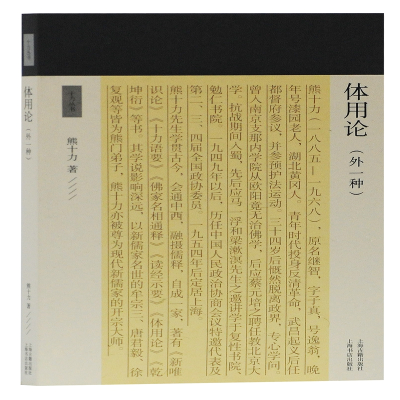 体用论
(外一种)
上海古籍出版社
上海书店出版社
熊十力(一八八五—一九六八),原名继智,字子真,号逸翁,晚
年号漆园老人,湖北黄冈人。青年时代投身反清革命,武昌起义后任
都督府参议,并参预护法运动,三十四岁后慨然脱离政界,专心学问,
曾入南京支那内学院从欧阳竟无治佛学,后应蔡元培之聘任教北京大
学,抗战期间入蜀,先后应马一浮和梁漱溟先生之邀讲学于复性书院、
勉仁书院,一九四九年以后,历任中国人民政治协商会议特邀代表及
第二、三、四届全国政协委员,一九五四年后定居上海。
熊十力先生学贯古今,会通中西,融摄儒释,自成一家,著有《新唯
识论》《十力语要》《佛家名相通释》《读经示要》《体用论》《乾
坤衍》等书,其学说影响深远,以新儒家名世的牟宗三、唐君毅、徐
复观等皆为熊门弟子,熊十力亦被尊为现代新儒家的开宗大师。
熊十力 著
体用论
(外一种)
熊十力 著
上海古籍出版社
上海书店出版社